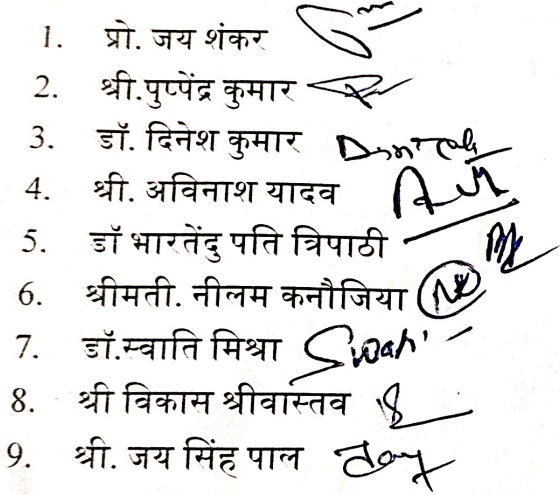 1. प्रो. जय शंकर
2. श्री.पुष्पेंद्र कुमार
3. डॉ. दिनेश कुमार
4. श्री. अविनाश यादव
5. डॉ भारतेंदु पति त्रिपाठी
6. श्रीमती. नीलम कनौजिया
7. डॉ.स्वाति मिश्रा Swati
8. श्री विकास श्रीवास्तव
9. श्री. जय सिंह पाल